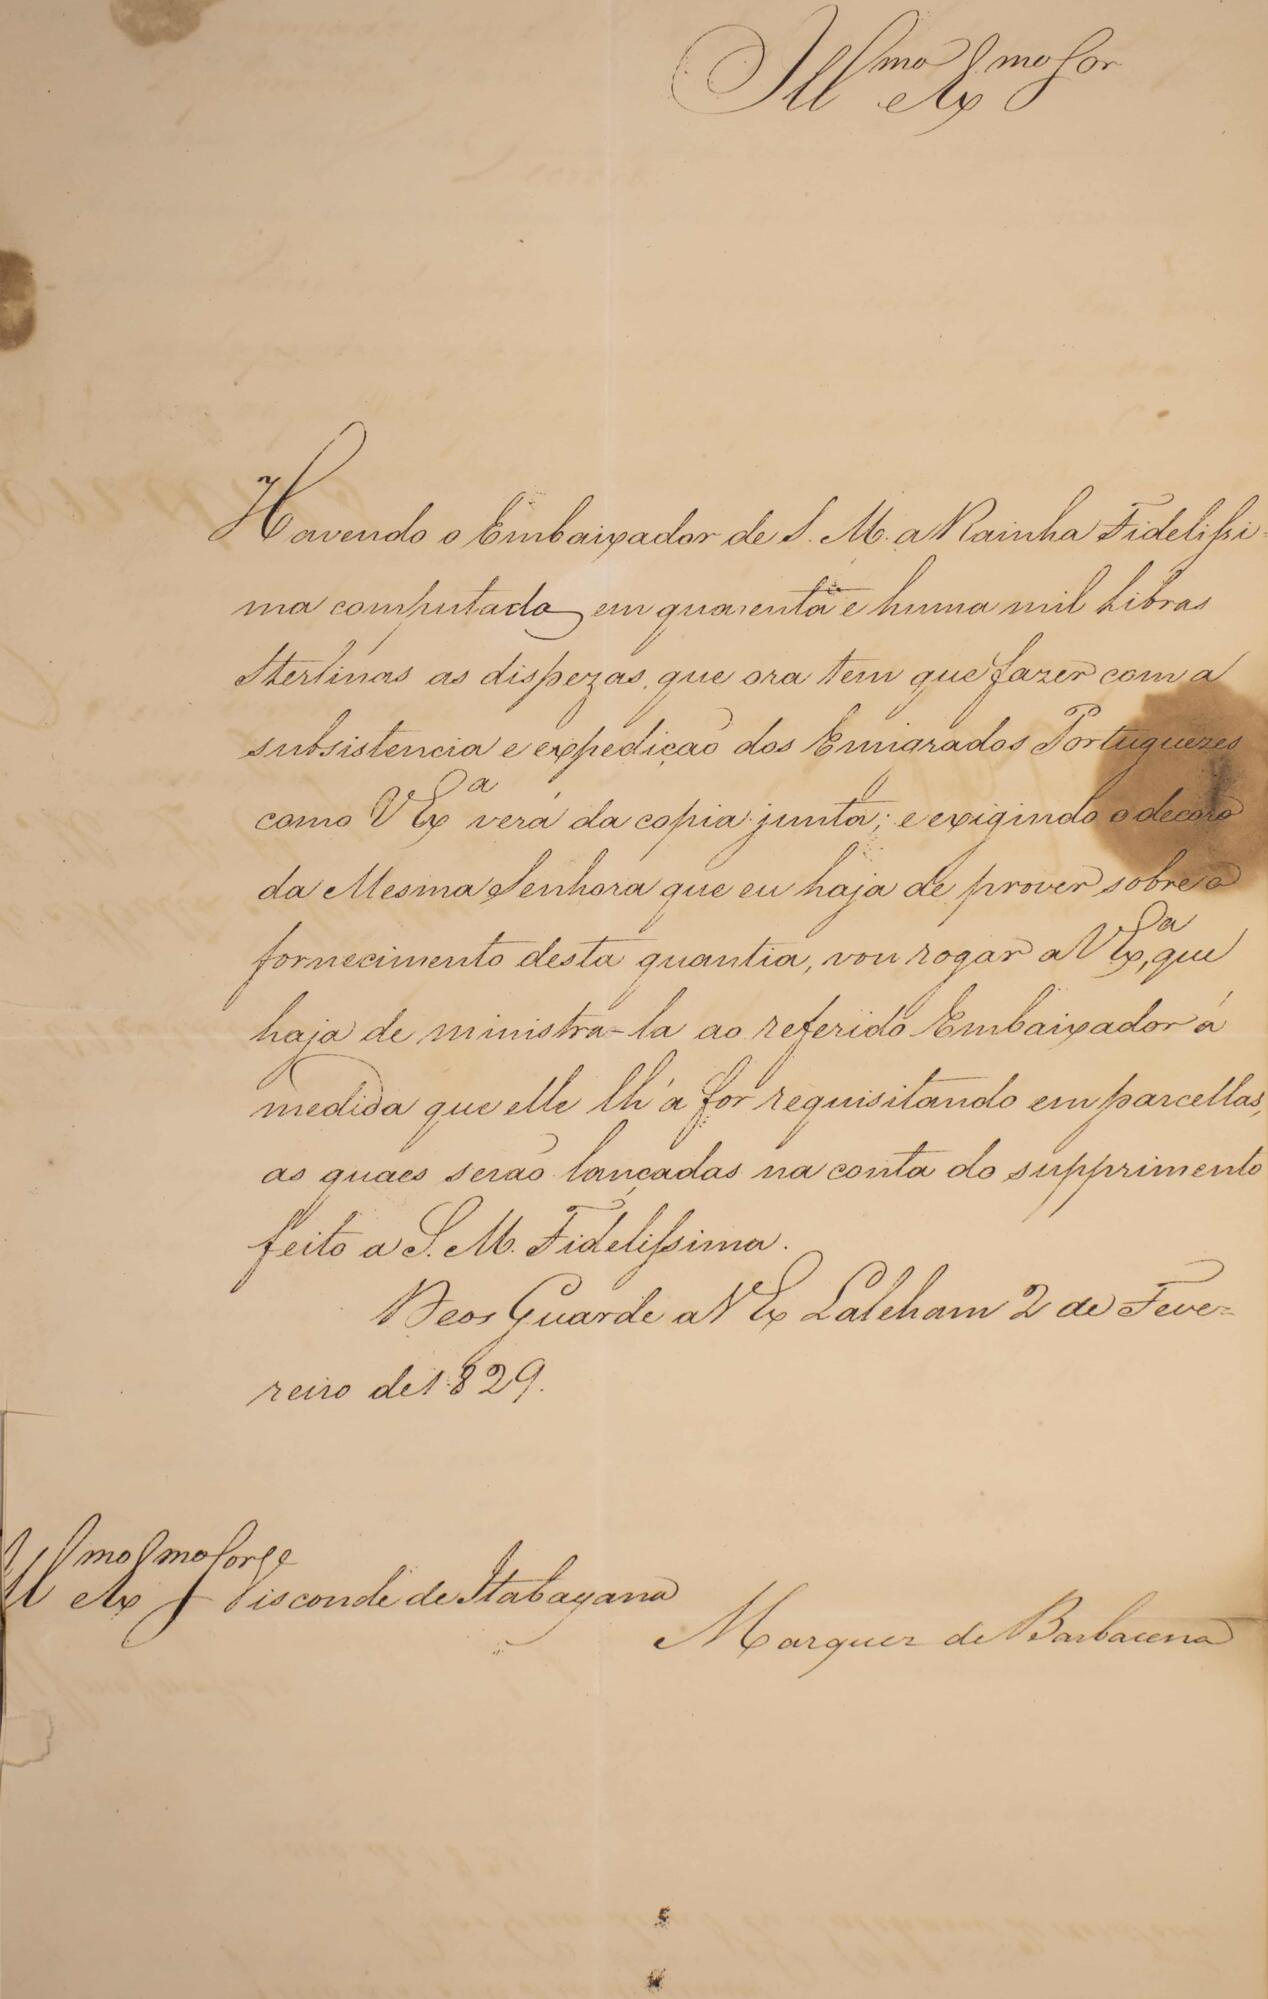 Ill<sup>mo</sup> e Ex<sup>mo</sup> Sor
Havendo o Embaixador de S. M. a Rainha Fidelissi-
ma computado em quarenta e huma mil Libras
Sterlinas as dispezas, que ora tem que fazer com a
subsistencia e expedição dos Emigrados Portuguezes
como V Ex<sup>a</sup> verá da copia junta; e exigindo o decoro
da Mesma Senhora que eu haja de prover sobre o
fornecimento desta quantia, vou rogar a V Ex<sup>a</sup>, que
haja de ministra-la ao referido Embaixador á
medida que elle lh'a for requisitando em parcellas,
as quaes serão lançadas na conta do supprimento
feito a S. M. Fidelissima.
Deos Guarde a V Ex Laleham 2 de Feve-
reiro de 1829.
Ill<sup>mo</sup> e Ex<sup>mo</sup> Sor Visconde de Itabayana
Marquez de Barbacena